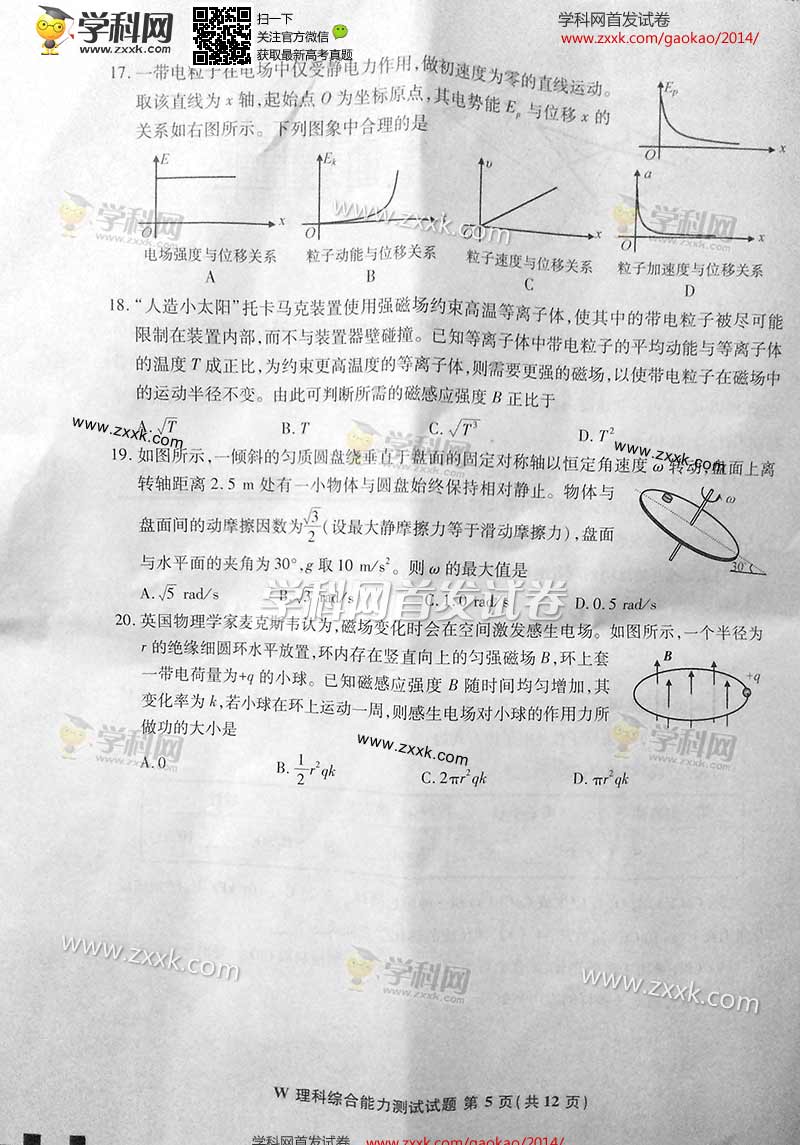 学科网
www.zxxk.com
扫一下
关注官方微信
获取最新高考真题
学科网首发试卷
www.zxxk.com/gaokao/2014/
17. 一带电粒子在电场中仅受静电力作用,做初速度为零的直线运动。
取该直线为 x 轴,起始点 O 为坐标原点,其电势能 Eₚ 与位移 x 的
关系如右图所示。下列图象中合理的是
Eₚ
O
x
E
O
x
电场强度与位移关系
A
Eₖ
O
粒子动能与位移关系
B
υ
O
x
粒子速度与位移关系
C
a
O
x
粒子加速度与位移关系
D
学科网
www.zxxk.com
www.zxxk.com
学科网
www.zxxk.com
18. “人造小太阳”托卡马克装置使用强磁场约束高温等离子体,使其中的带电粒子被尽可能
限制在装置内部,而不与装置器壁碰撞。已知等离子体中带电粒子的平均动能与等离子体
的温度 T 成正比,为约束更高温度的等离子体,则需要更强的磁场,以使带电粒子在磁场中
的运动半径不变。由此可判断所需的磁感应强度 B 正比于
A. √T B. T C. √T³ D. T²
www.zxxk.com
学科网
www.zxxk.com
www.zxxk.com
19. 如图所示,一倾斜的匀质圆盘绕垂直于盘面的固定对称轴以恒定角速度 ω 转动,盘面上离
转轴距离 2.5 m 处有一小物体与圆盘始终保持相对静止。物体与
盘面间的动摩擦因数为√3/2(设最大静摩擦力等于滑动摩擦力),盘面
与水平面的夹角为30°,g 取 10 m/s²。则 ω 的最大值是
A. √5 rad/s B. √3 rad/s C. 1.0 rad/s D. 0.5 rad/s
ω
30°
学科网首发试卷
20. 英国物理学家麦克斯韦认为,磁场变化时会在空间激发感生电场。如图所示,一个半径为
r 的绝缘细圆环水平放置,环内存在竖直向上的匀强磁场 B,环上套
一带电荷量为+q 的小球。已知磁感应强度 B 随时间均匀增加,其
变化率为 k,若小球在环上运动一周,则感生电场对小球的作用力所
做功的大小是
A. 0 B. 1/2 r²qk C. 2πr²qk D. πr²qk
B
+q
学科网
www.zxxk.com
www.zxxk.com
学科网
www.zxxk.com
www.zxxk.com
学科网
www.zxxk.com
www.zxxk.com
W 理科综合能力测试试题 第 5 页(共 12 页)
学科网首发试卷
www.zxxk.com/gaokao/2014/